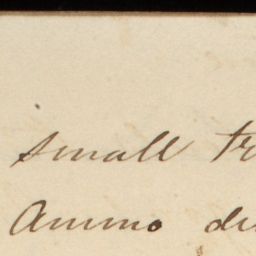 small tr
Ammo di